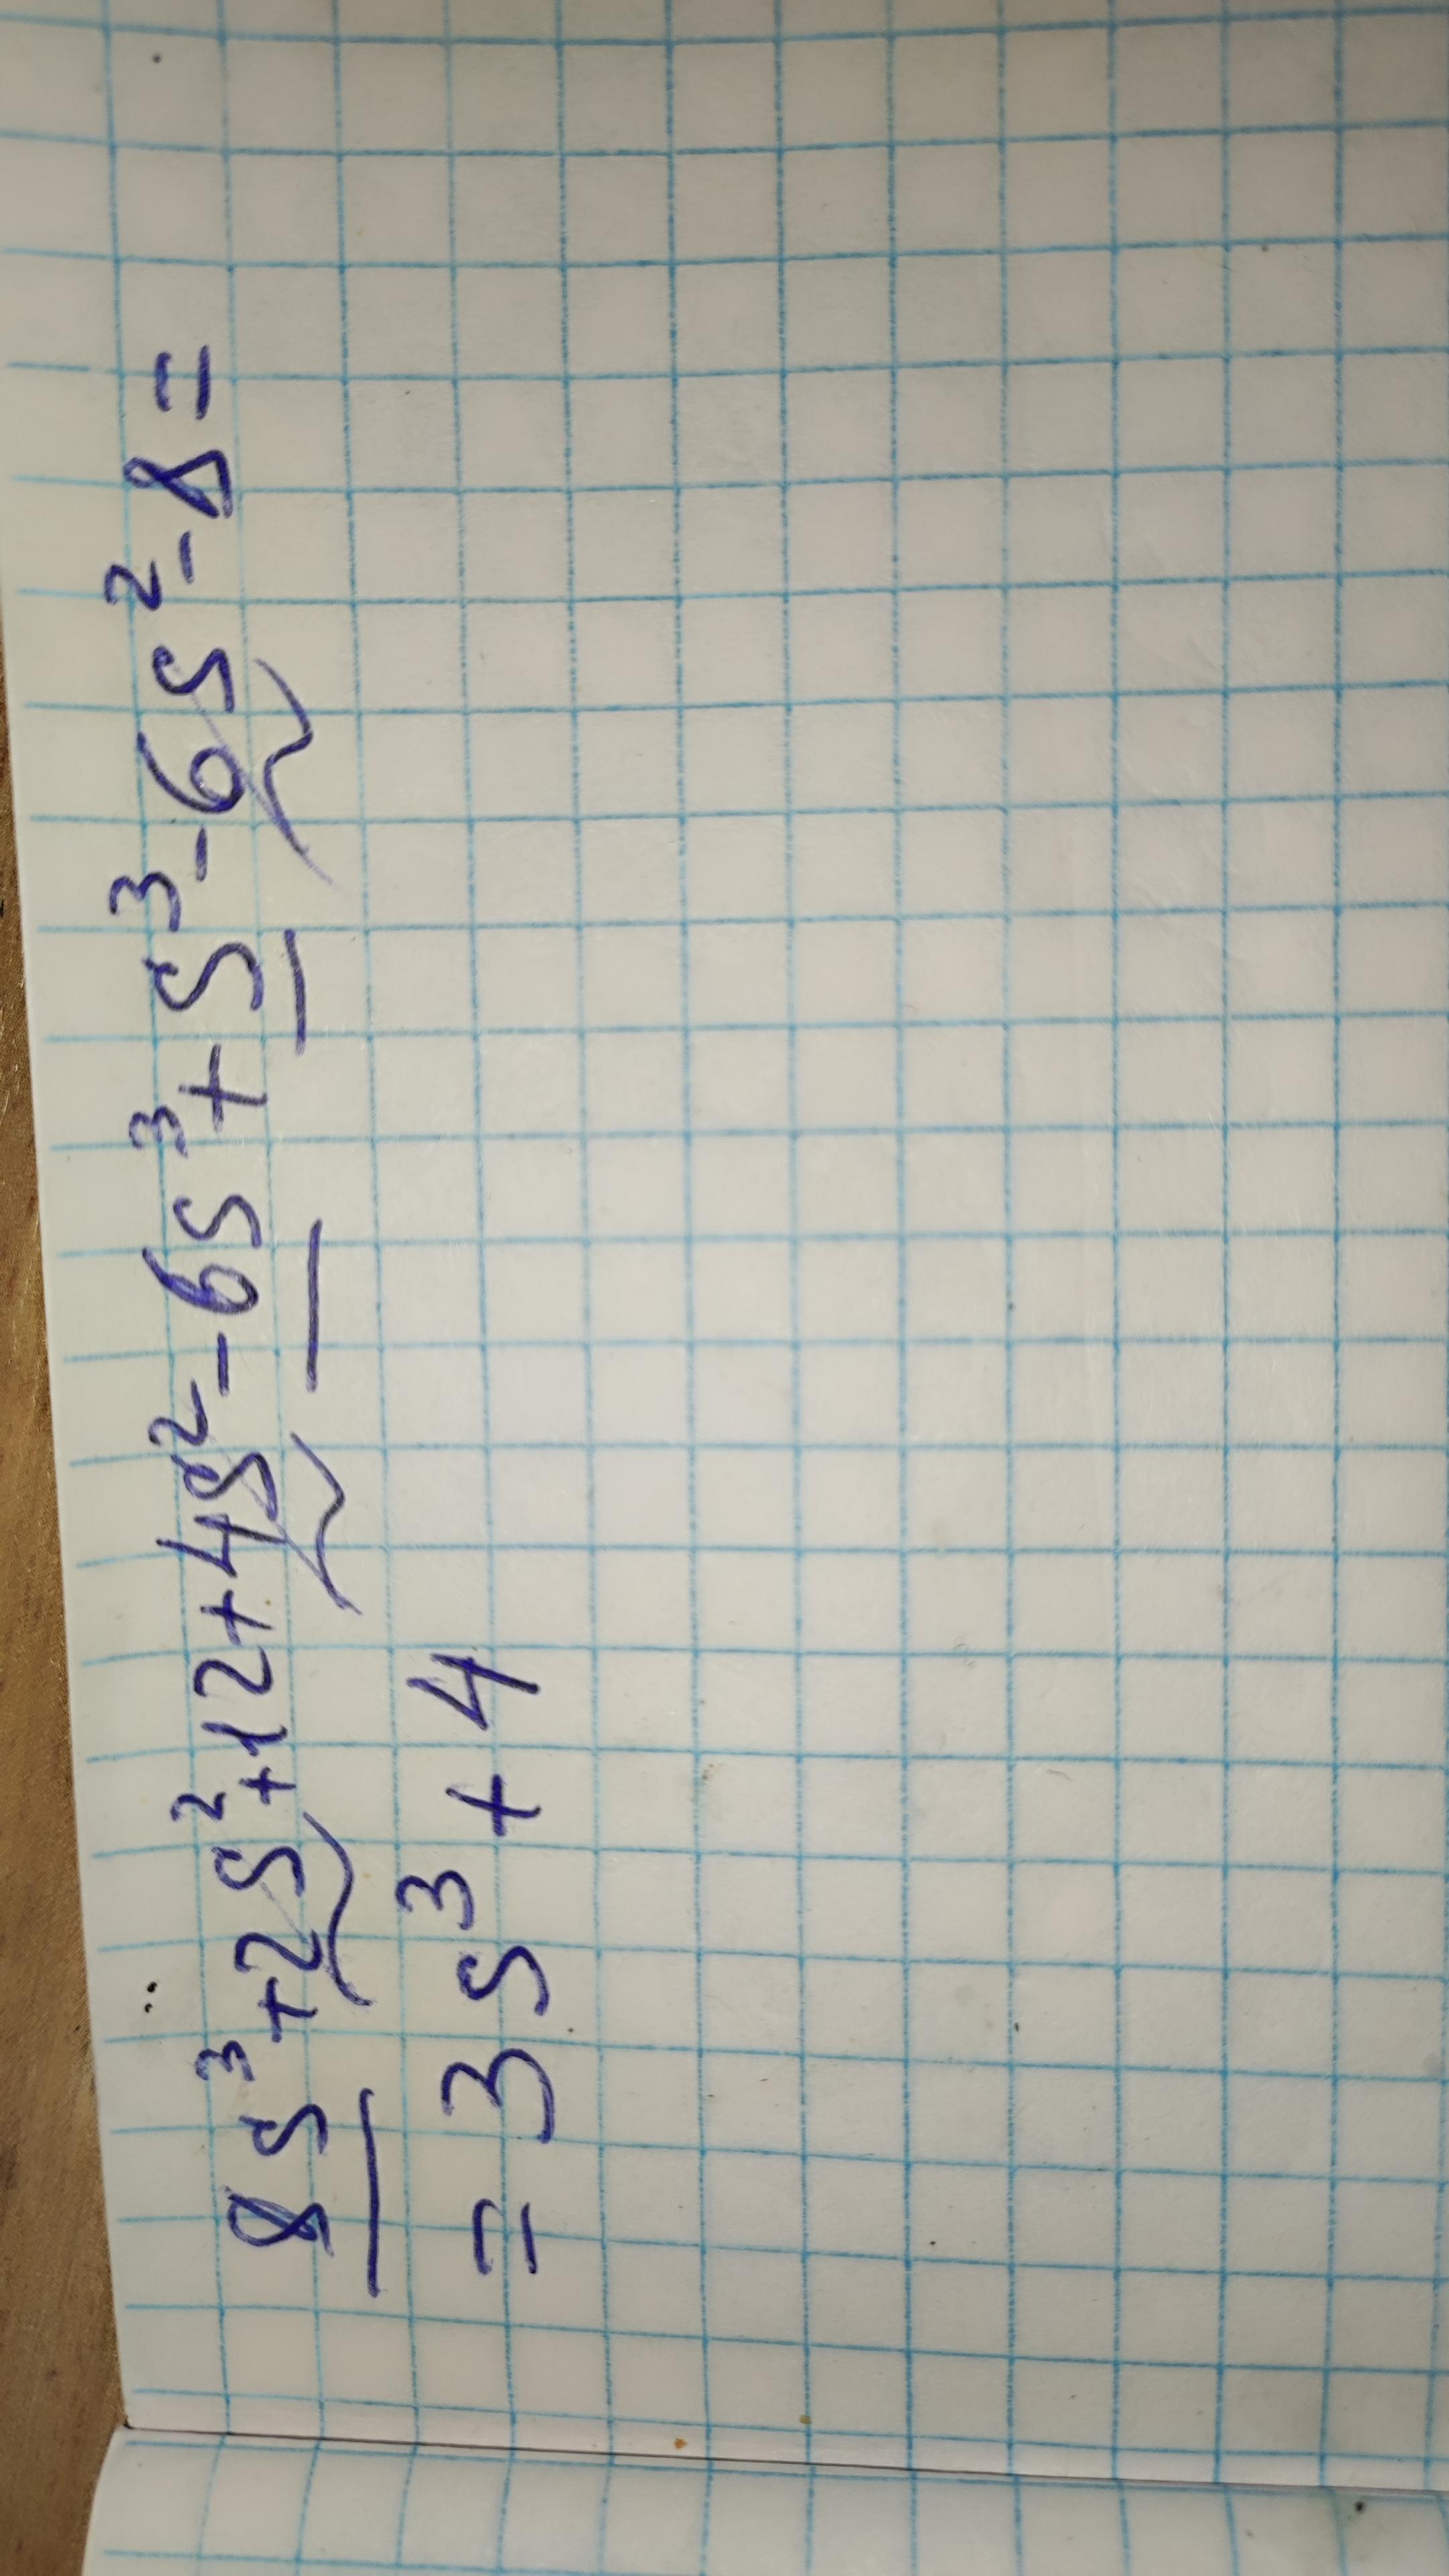 8s³+2s²+12+4s²-6s³+s³-6s²-8=
=3s³+4